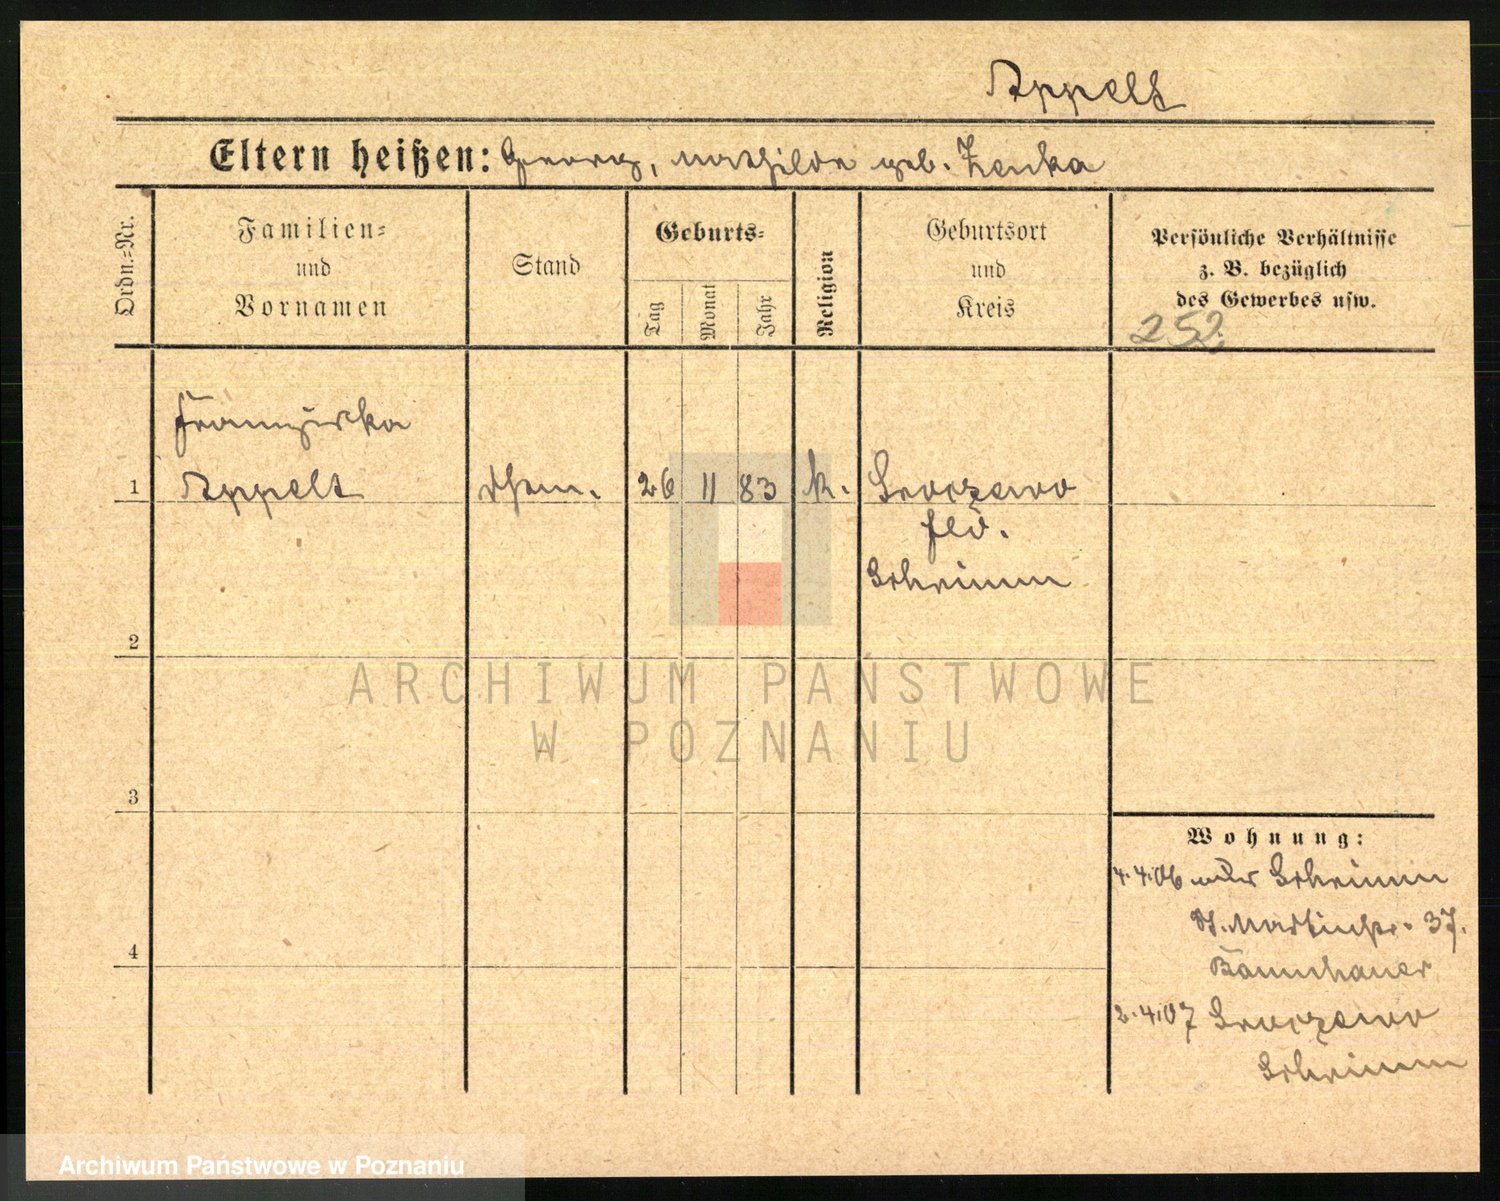 Appelt
Eltern heißen: Georg, Mathilde geb. Zenka
Ordn.-Nr.
Familien-
und
Vornamen
Stand
Geburts-
Tag
Monat
Jahr
Religion
Geburtsort
und
Kreis
Persönliche Verhältnisse
z. B. bezüglich
des Gewerbes usw.
252
Franziska
1 Appelt 26 11 83 k.
Schrimm
2
3
4
Wohnung:
4.4.06 Schrimm
St. Martinstr. 37.
2.4.07
Schrimm
ARCHIWUM PAŃSTWOWE
W POZNANIU
Archiwum Państwowe w Poznaniu